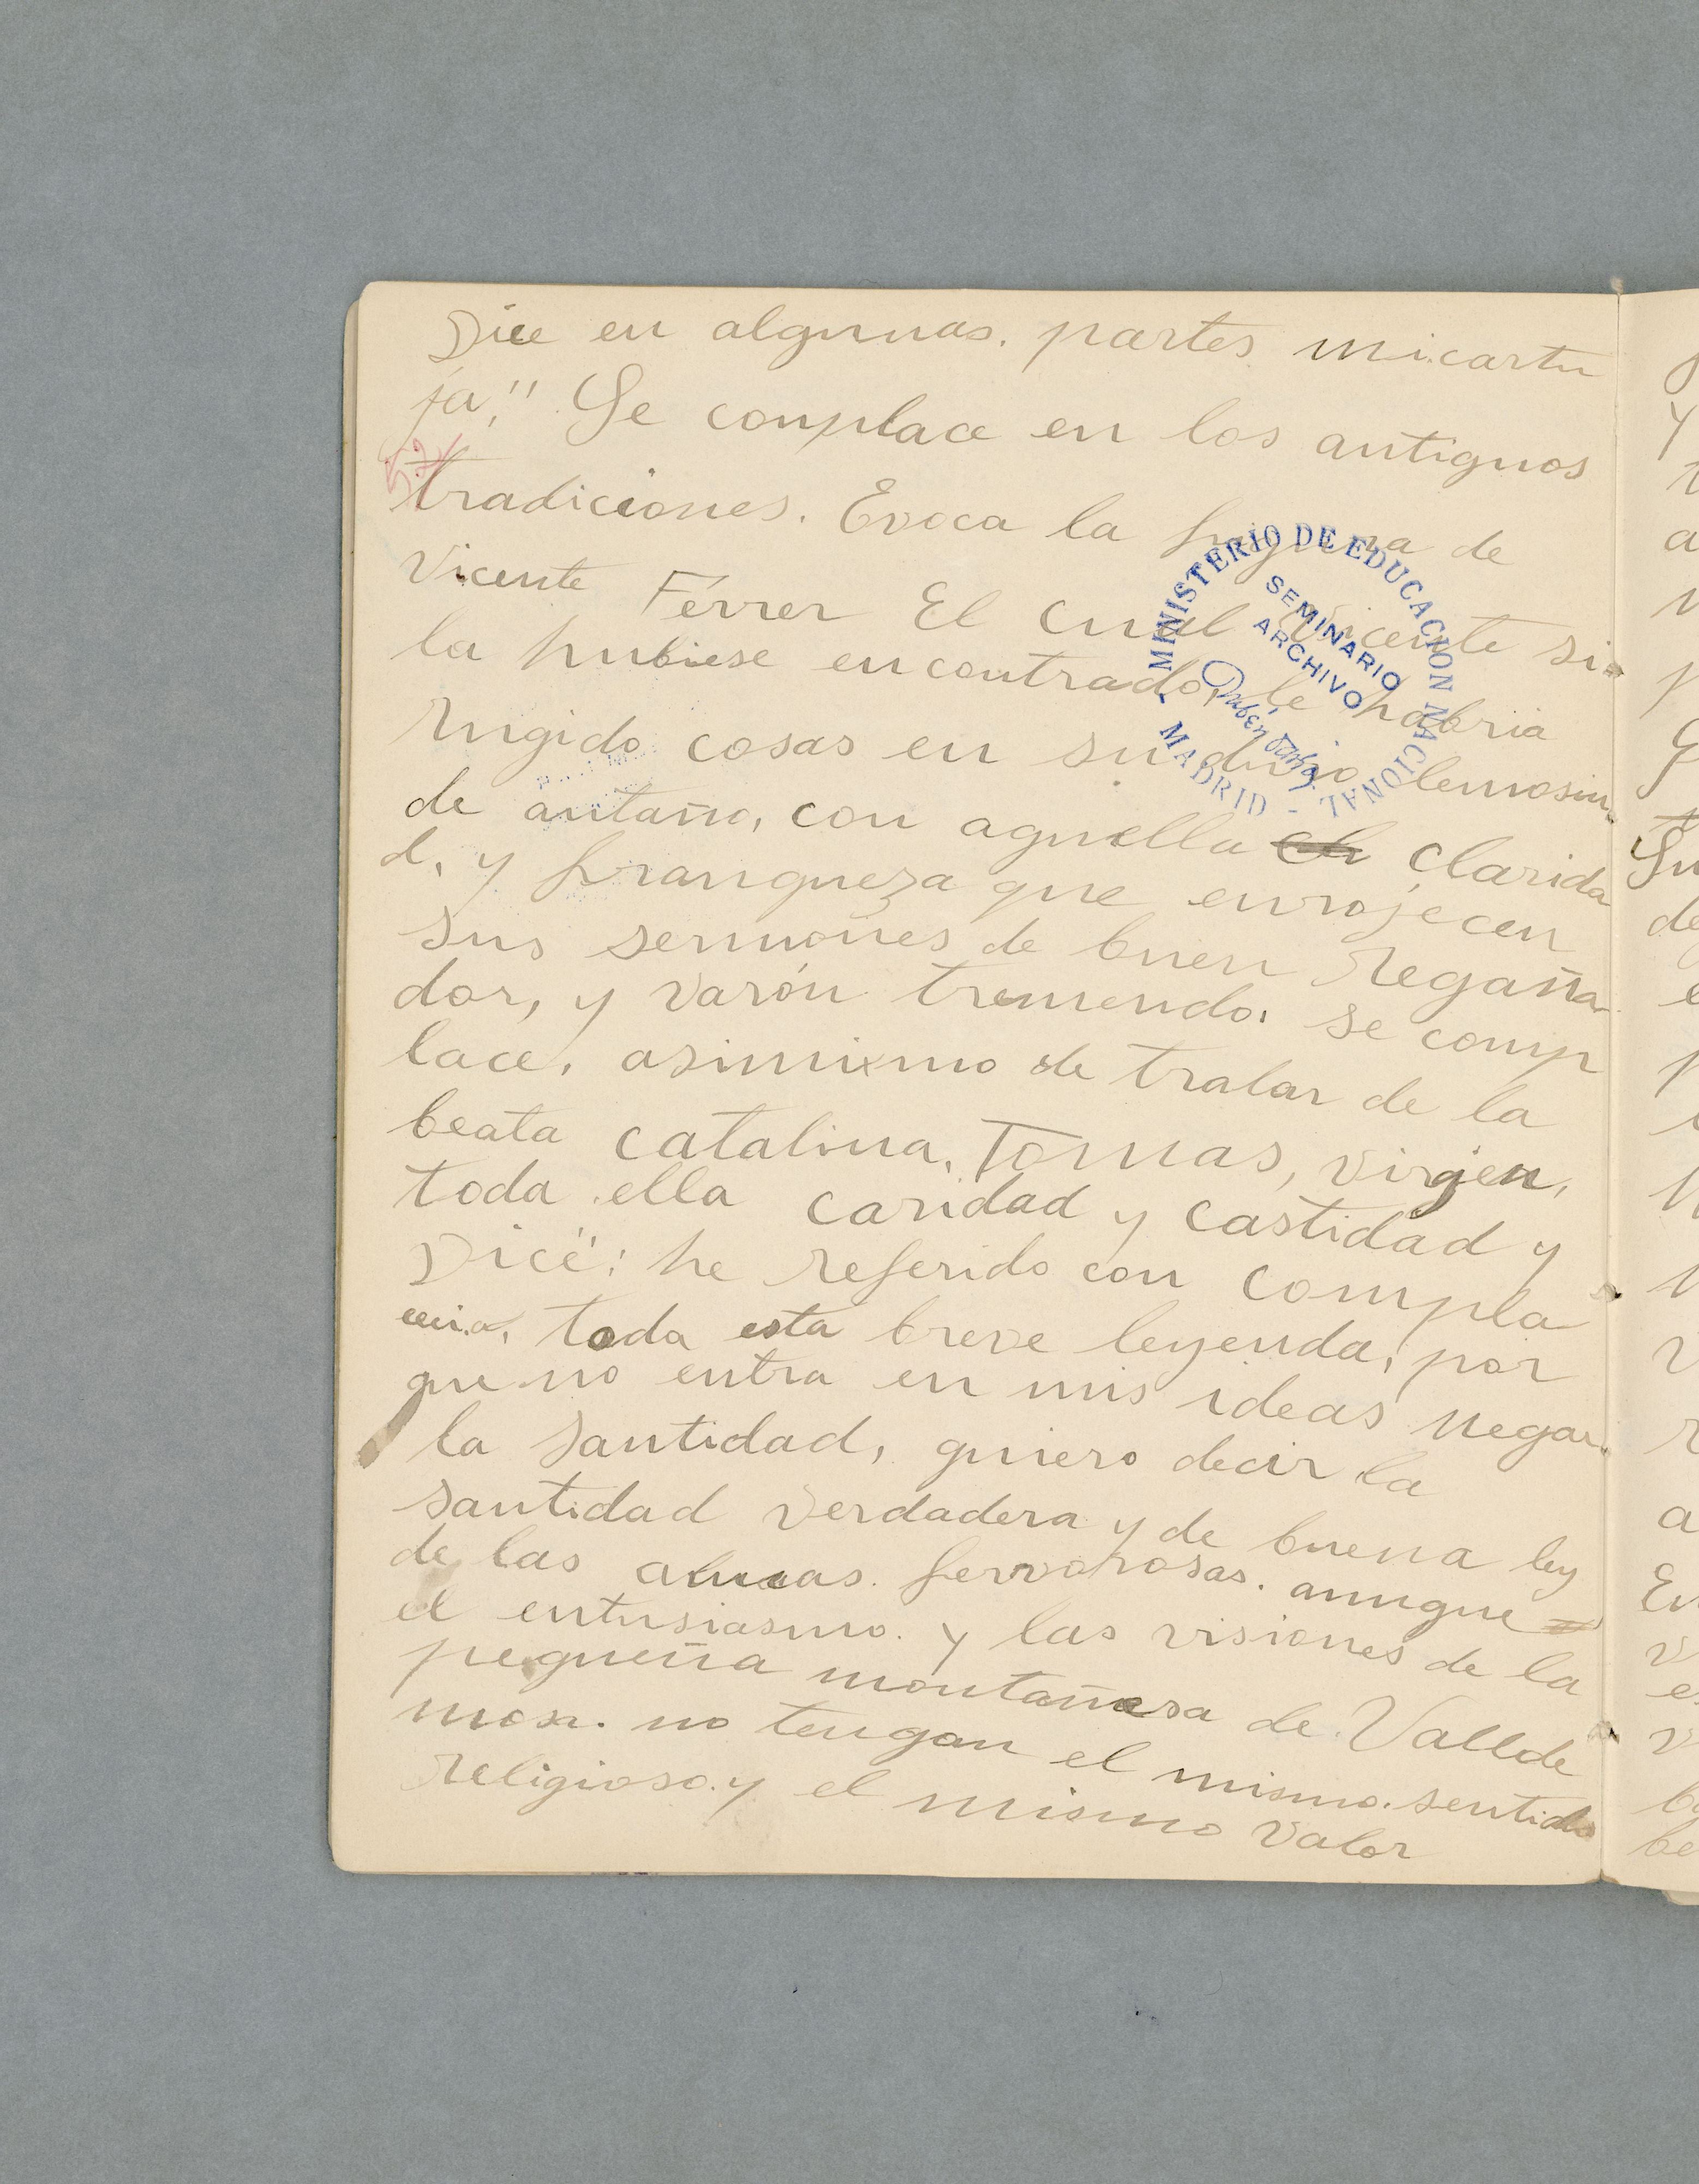 Dice en algunas. partes mi cartu
ja," Se complace en los antiguos
52
tradiciones. Evoca la figura de
Vicente Ferrer El cual Vicente si
la hubiese encontrado, le habria
rugido cosas en su duro lemosin
de antaño, con aquella clarida
d, y franqueza que enrojecen
sus sermones de buen regaña
dor, y varón tremendo. se comp
lace, asimixmo de tratar de la
beata catalina, Tomas, virgen,
toda ella caridad y castidad y
Dice: he referido con compla
cia, toda esta breve leyenda, por
que no entra en mis ideas negar
la santidad, quiero decir la
santidad verdadera y de buena ley
de las almas. fervorosas. aunque
el entusiasmo. y las visiones de la
pequeña montañesa de Vallde
mosa. no tengan el mismo. sentido
religioso. y el mismo valor
MINISTERIO DE EDUCACION NACIONAL - MADRID -
SEMINARIO
ARCHIVO
Rubén Darío
Su
de